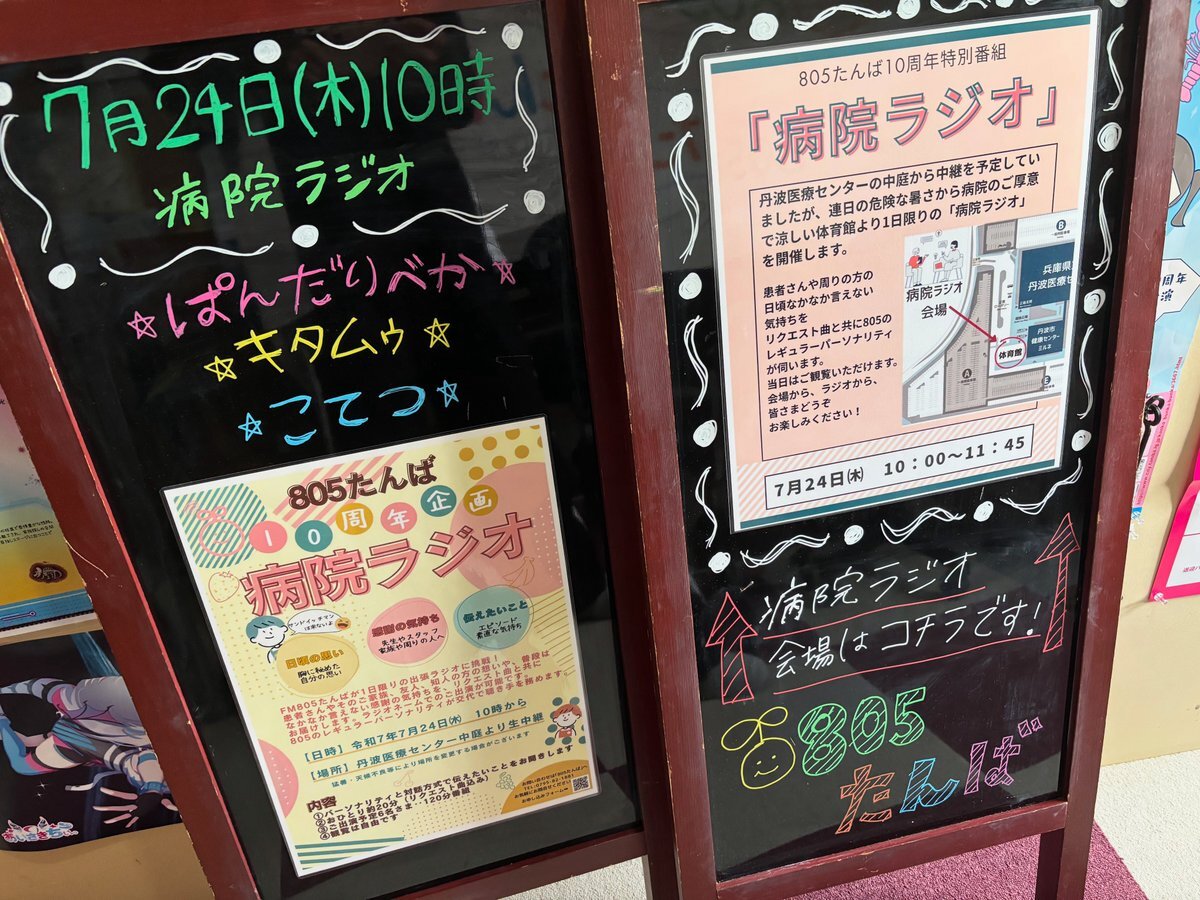 7月24日(木)10時
病院ラジオ
☆ぱんだりべか☆
☆キタムゥ☆
☆こてつ☆
805たんば
10周年企画
病院ラジオ
サンドイッチマン
は来ないよ
日頃の思い
胸に秘めた
自分の思い
感謝の気持ち
先生やスタッフ
家族や周りの人へ
伝えたいこと
エピソード
素直な気持ち
FM805たんばが1日限りの出張ラジオに挑戦!
患者さんやそのご家族、友人、知人の方の想いや、普段は
なかなか言えない感謝の気持ちを、リクエスト曲と共に
お届けします。ラジオネームでのご出演が可能です。
805のレギュラーパーソナリティが交代で聴き手を務めます。
【日時】令和7年7月24日㈭ 10時から
【場所】丹波医療センター中庭より生中継
猛暑・天候不良等により場所を変更する場合がございます
内容
①パーソナリティと対話方式で伝えたいことをお聞きします
②おひとり約20分(リクエスト曲込み)
③ご出演予定6名さま・・120分番組
④観覧は自由です
805たんば10周年特別番組
「病院ラジオ」
丹波医療センターの中庭から中継を予定してい
ましたが、連日の危険な暑さから病院のご厚意
で涼しい体育館より1日限りの「病院ラジオ」
を開催します。
患者さんや周りの方の
日頃なかなか言えない
気持ちを
リクエスト曲と共に805の
レギュラーパーソナリティ
が伺います。
当日はご観覧いただけます。
会場から、ラジオから、
皆さまどうぞ
お楽しみください!
病院ラジオ
会場
体育館
兵庫県立
丹波医療セン
丹波市
健康センター
ミルネ
A
B
E
7月24日㈭ 10:00〜11:45
病院ラジオ
会場はコチラです!
805
たんば